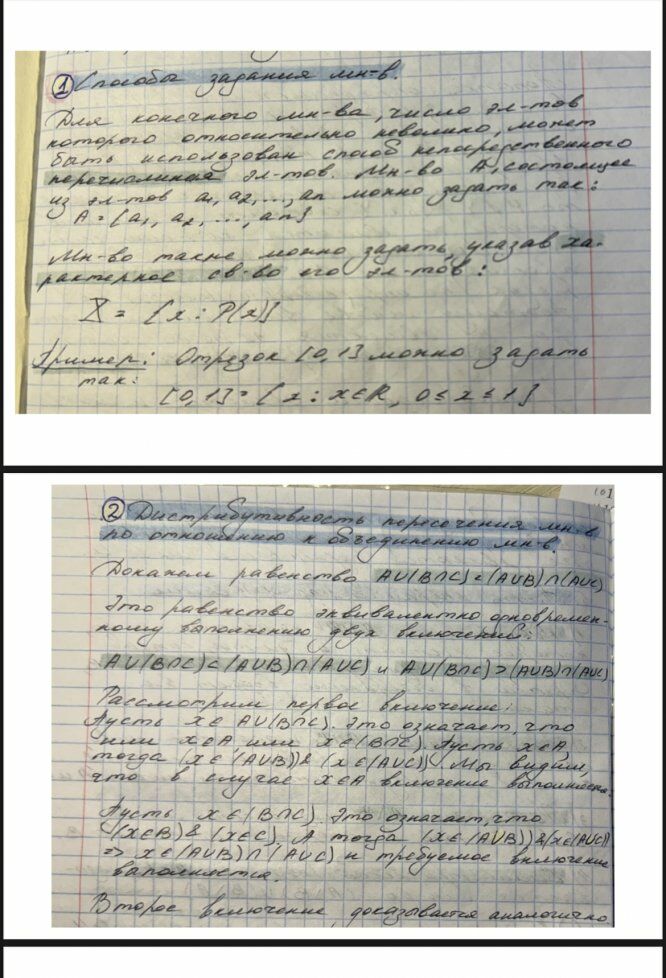 ① Способы задания мн-в.
Для конечного мн-ва, число эл-тов
которого относительно невелико, может
быть использован способ непосредственного
перечисления эл-тов. Мн-во A, состоящее
из эл-тов a₁, a₂, ..., aₙ можно задать так:
A = {a₁, a₂, ..., aₙ}
Мн-во также можно задать, указав ха-
рактерное св-во его эл-тов:
X = {x : P(x)}
Пример: Отрезок [0,1] можно задать
так:
[0,1] = {x : x∈R, 0 ≤ x ≤ 1}
② Дистрибутивность пересечения мн-в
по отношению к объединению мн-в.
Докажем равенство A∪(B∩C) = (A∪B)∩(A∪C)
Это равенство эквивалентно одновремен-
ному выполнению двух включений:
A∪(B∩C)⊂(A∪B)∩(A∪C) и A∪(B∩C)⊃(A∪B)∩(A∪C)
Рассмотрим первое включение:
Пусть x∈A∪(B∩C). Это означает, что
или x∈A, или x∈(B∩C). Пусть x∈A,
тогда (x∈(A∪B))&(x∈(A∪C)). Мы видим,
что в случае x∈A включение выполняется.
Пусть x∈(B∩C). Это означает, что
(x∈B)&(x∈C). А тогда (x∈(A∪B))&(x∈(A∪C))
=> x∈(A∪B)∩(A∪C) и требуемое включение
выполняется.
Второе включение доказывается аналогично